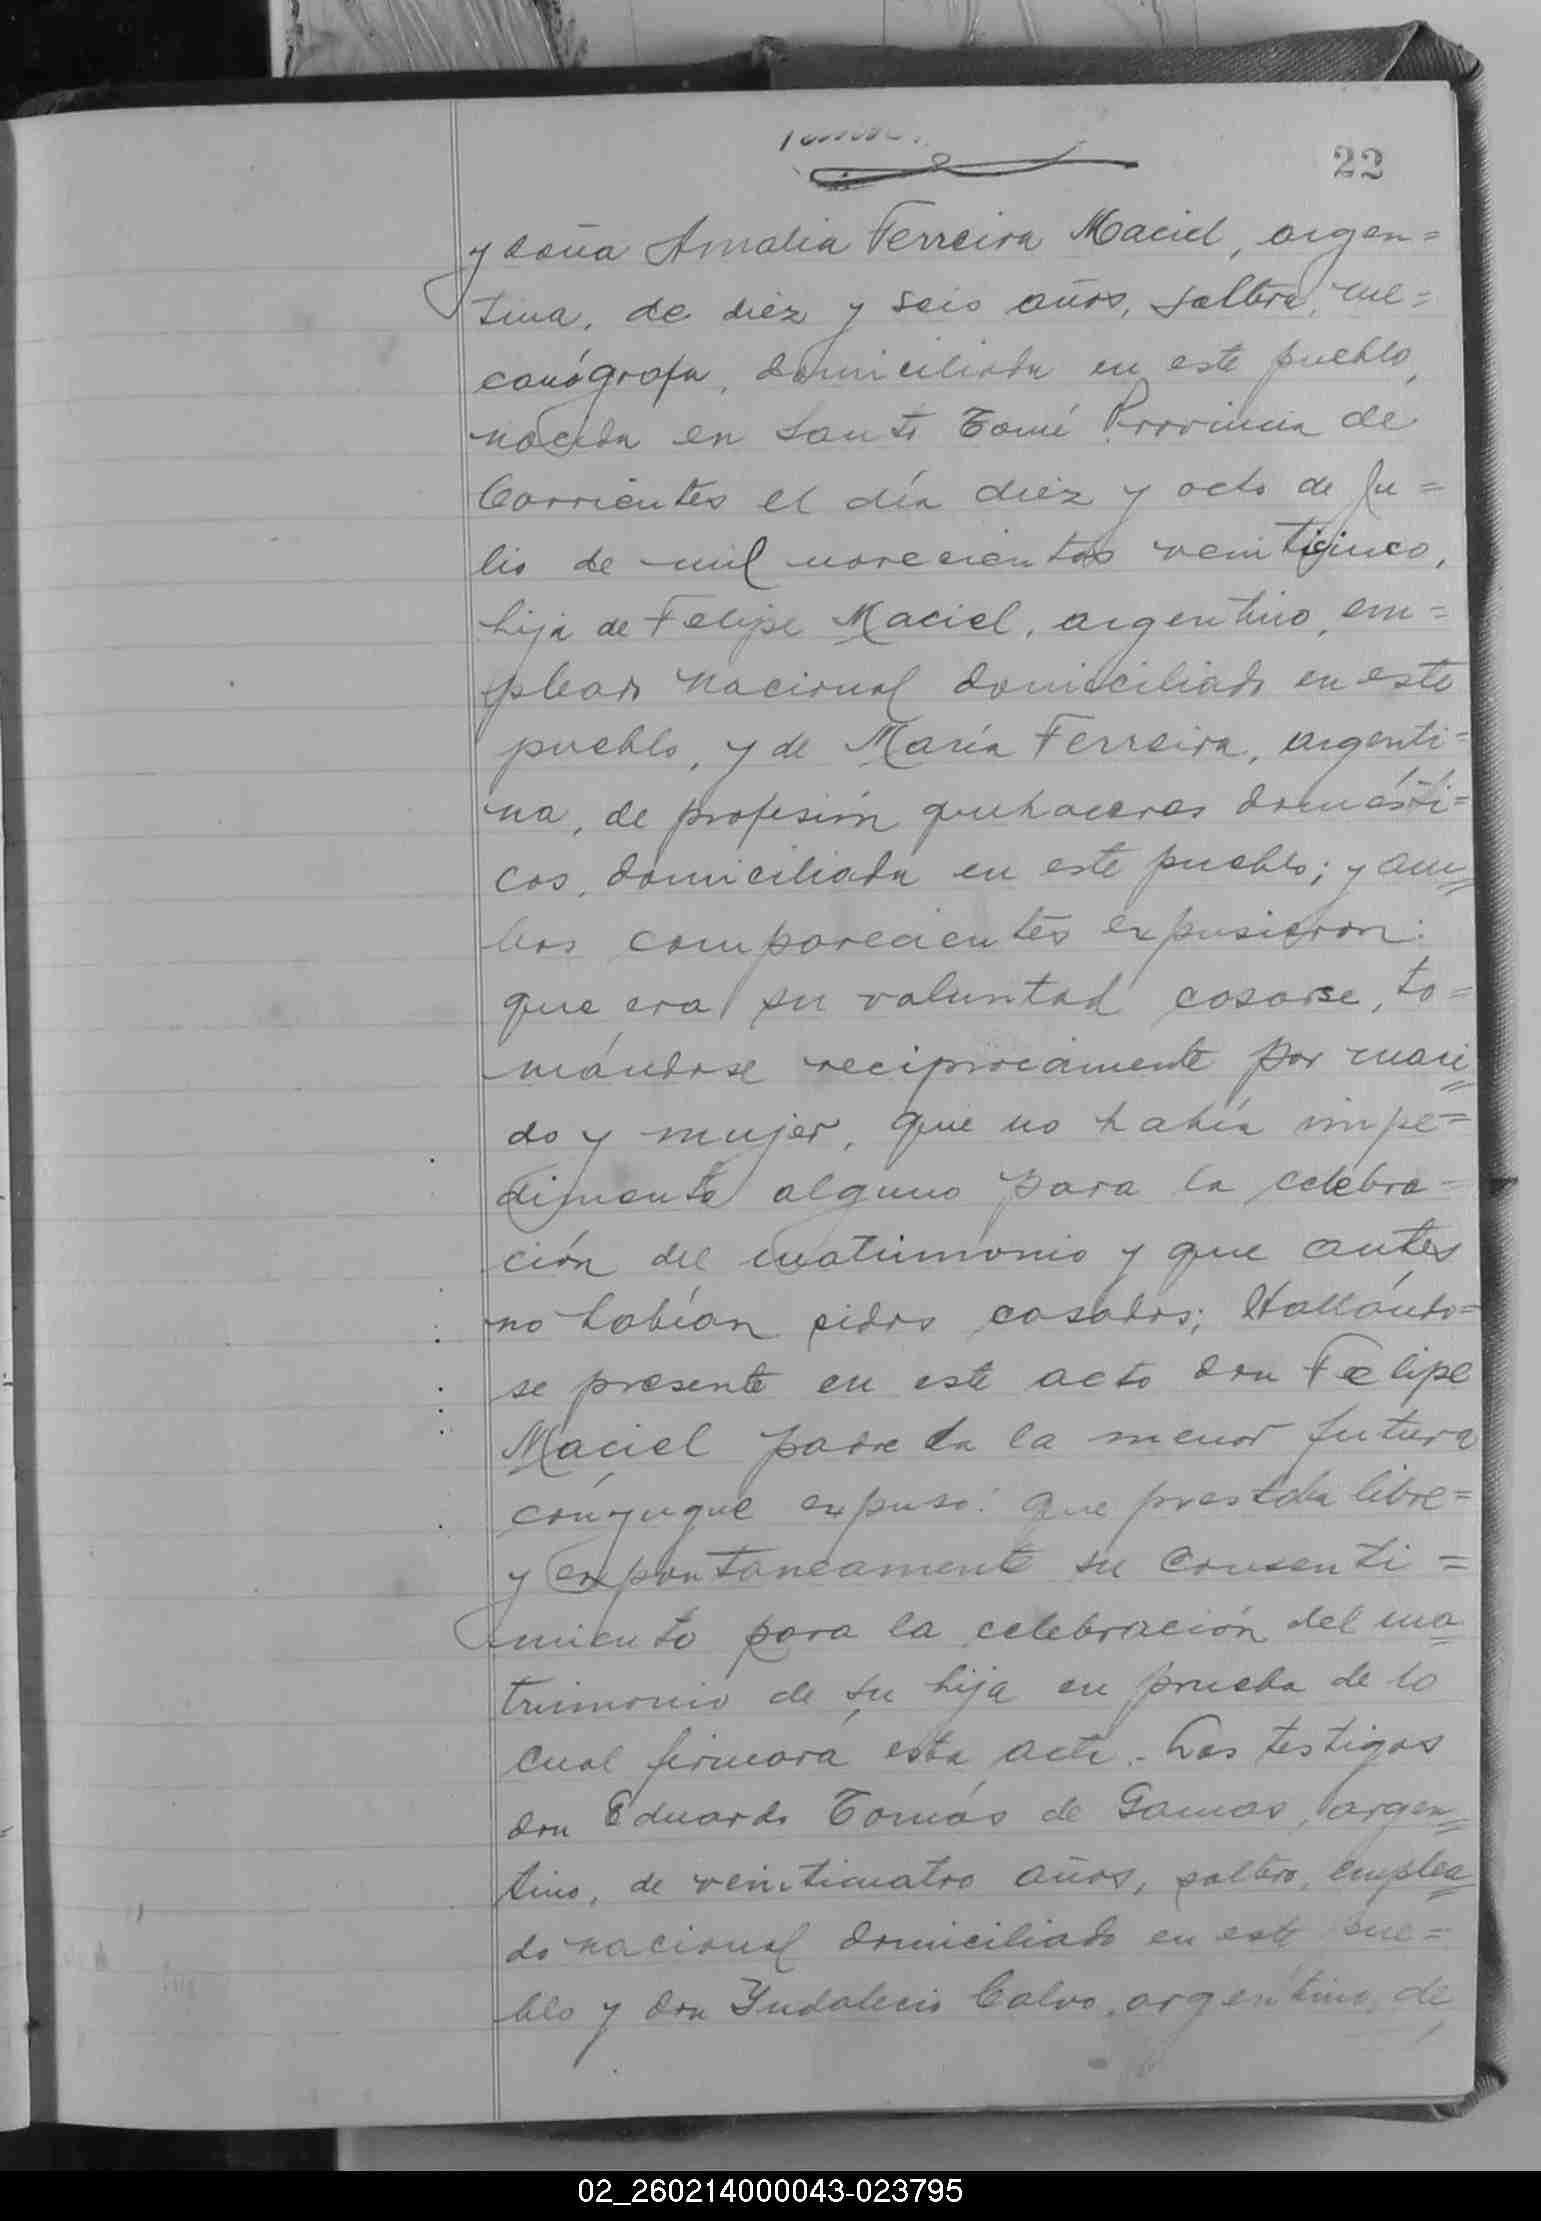 22
y doña Amalia Ferreira Maciel, argen=
tina, de diez y seis años, soltera, me=
canógrafa, domiciliada en este pueblo,
nacida en Santo Tomé Provincia de
Corrientes el día diez y ocho de Ju=
lio de mil novecientos veinticinco,
hija de Felipe Maciel, argentino, em=
pleado nacional domiciliado en este
pueblo, y de María Ferreira, argenti=
na, de profesión quehaceres domésti=
cos, domiciliada en este pueblo; y am=
bos comparecientes expusieron:
que era su voluntad casarse, to=
mándose reciprocamente por mari=
do y mujer, que no había impe=
dimento alguno para la celebra=
ción del matrimonio y que antes
no habían sidos casados; Hallándo=
se presente en este acto don Felipe
Maciel padre de la menor futura
cónyugue expuso: que prestaba libre=
y expontaneamente su consenti=
miento para la celebración del ma=
trimonio de su hija en prueba de lo
cual firmará esta acta.- Los testigos
don Eduardo Tomás de Gamas, argen=
tino, de veinticuatro años, soltero, emplea=
do nacional domiciliado en este pue=
blo y don Yndalecio Calvo, argentino, de
02_260214000043-023795